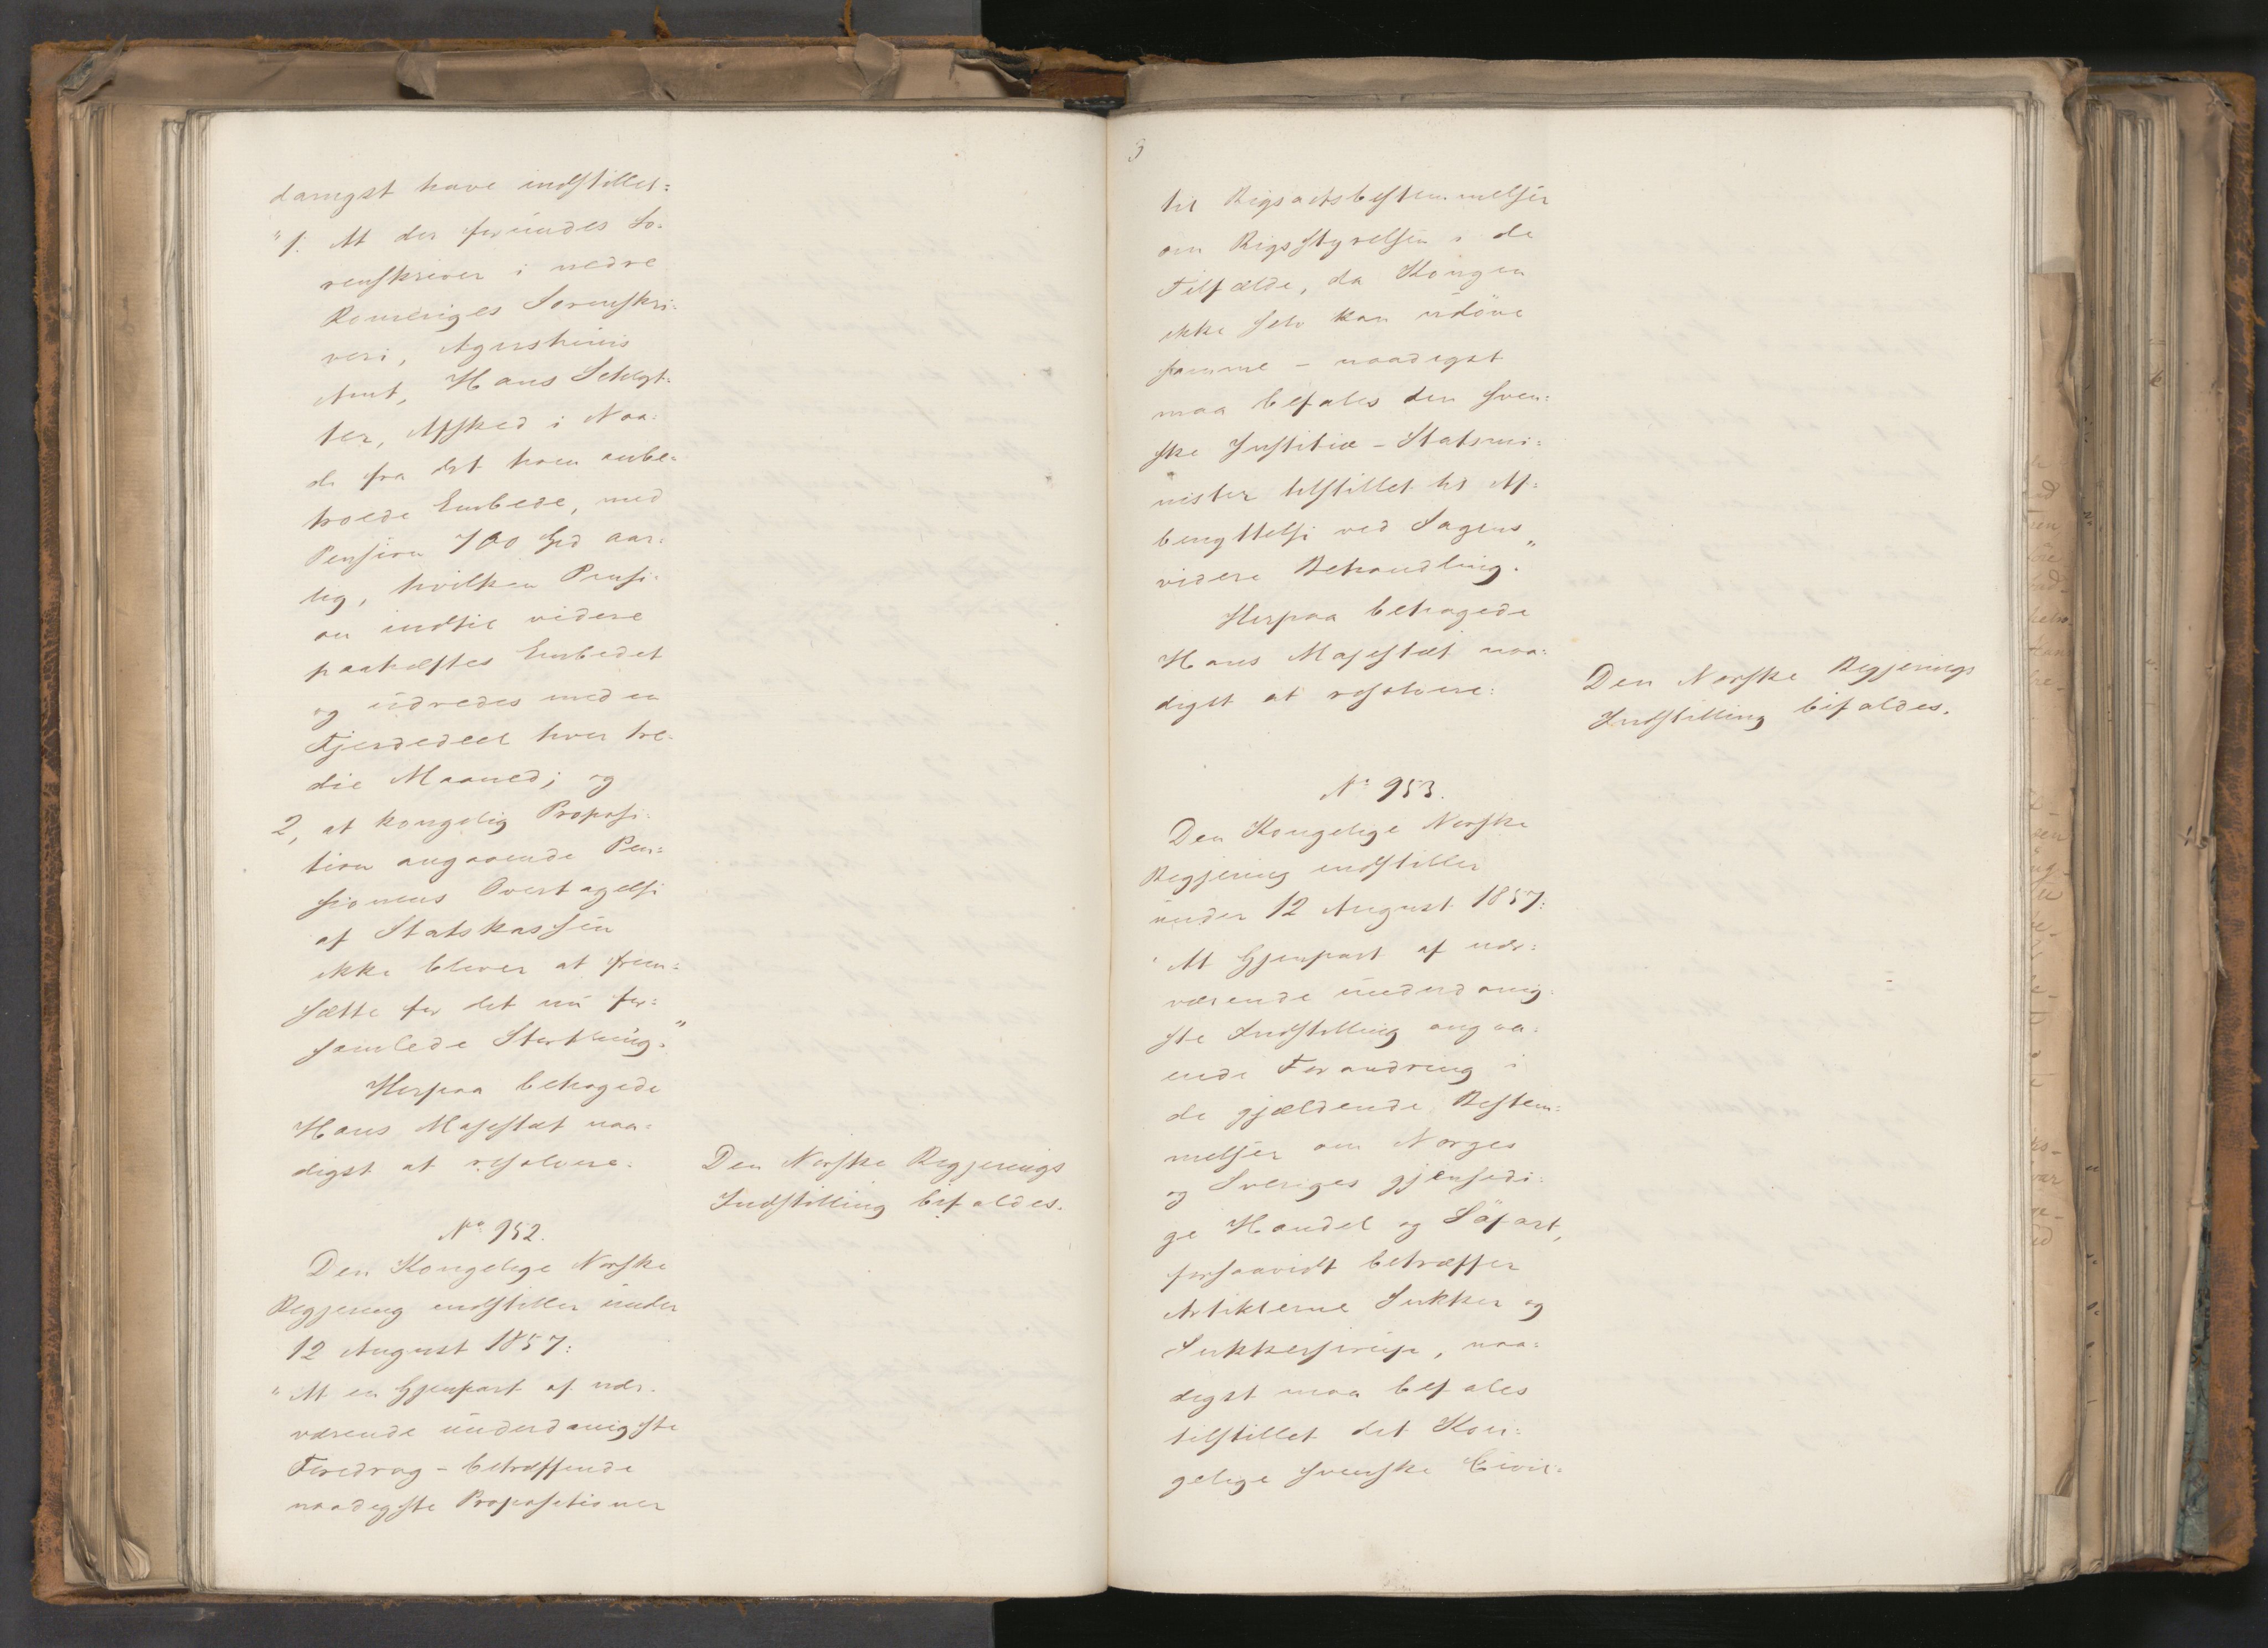 danigst have indstillet:
"1. At der forundes So-
renskriver i nedre
Romeriges Sorenskri-
veri, Agershuus
Amt, Hans Schlyt-
ter, Afsked i Naa-
de fra det ham anbe-
troede Embede, med
Pension 700 Spd aar-
lig, hvilken Pensi-
on indtil videre
paahæftes Embedet
og udredes med en
Fjerdedeel hver tre-
die Maaned; og
2, at kongelig Proposi-
tion angaaende Pen-
sionens Overtagelse
af Statskassen
ikke bliver at frem-
sætte for det nu for-
samlede Storthing."
Herpaa behagede
Hans Majestæt naa-
digst at resolvere:
Den Norske Regjerings
Indstilling bifaldes.
No 952.
Den Kongelige Norske
Regjering indstiller under
12 August 1857:
"At en Gjenpart af nær-
værende underdanigste
Foredrag - betræffende
naadigste Propositioner
til Rigsactsbestemmelser
om Rigsstyrelsen i de
Tilfælde, da Kongen
ikke selv kan udöve
samme - naadigst
maa befales den sven-
ske Justitiæ-Statsmi-
nister tilstillet til Af-
benyttelse ved Sagens
videre Behandling."
Herpaa behagede
Hans Majestæt naa-
digst at resolvere:
Den Norske Regjerings
Indstilling bifaldes.
No 953.
Den Kongelige Norske
Regjering indstiller
under 12 August 1857:
"At Gjenpart af nær-
værende underdanig-
ste Indstilling angaa-
ende Forandring i
de gjældende Bestem-
melser om Norges
og Sveriges gjensidi-
ge Handel og Söfart,
forsaavidt betræffer
Artiklerne Sukker og
Sukkersirup, naa-
digst maa befales
tilstillet det Kon-
gelige svenske Civil-